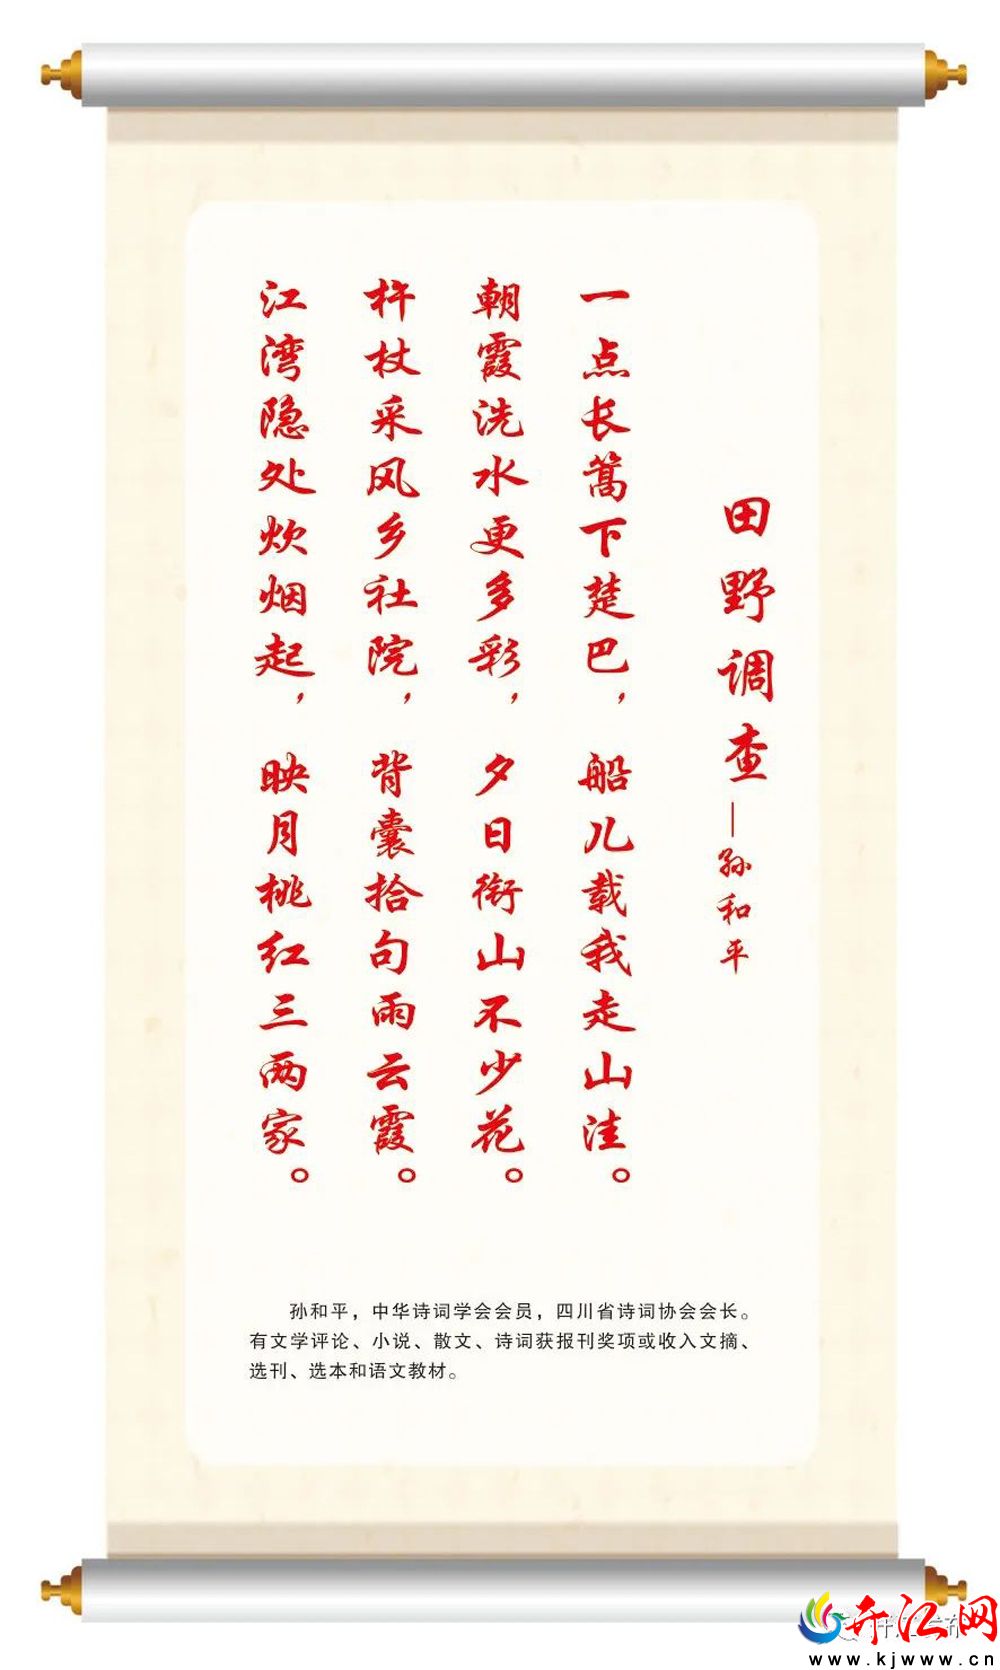 田野调查—孙和平
一点长篙下楚巴，船儿载我走山洼。
朝霞洗水更多彩，夕日衔山不少花。
杵杖采风乡社院，背囊拾句雨云霞。
江湾隐处炊烟起，映月桃红三两家。
孙和平，中华诗词学会会员，四川省诗词协会会长。
有文学评论、小说、散文、诗词获报刊奖项或收入文摘、
选刊、选本和语文教材。
开江网
www.kjwww.cn